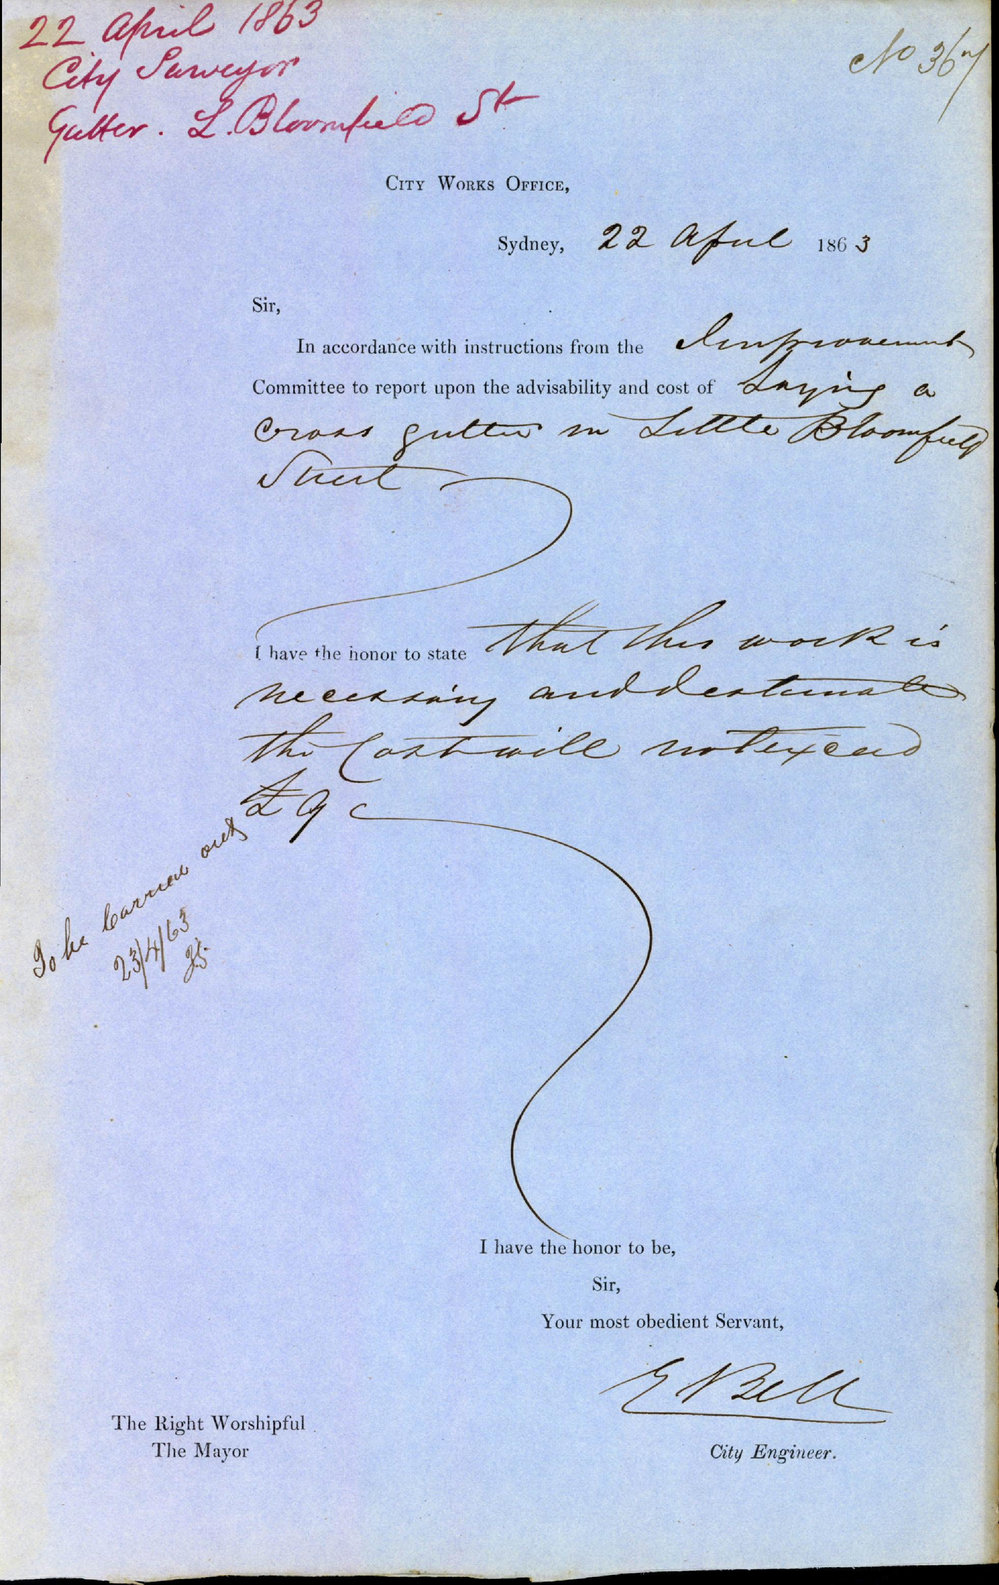 22 April 1863
City Surveyor
Gutter. L. Bloomfield St
No 367
City Works Office,
Sydney, 22 April 1863
Sir,
In accordance with instructions from the Improvement
Committee to report upon the advisability and cost of Laying a
Cross gutter in Little Bloomfield
Street
I have the honor to state that this work is
necessary and I estimate
the Cost will not exceed
£9
To be Carried out
23/4/63
I have the honor to be,
Sir,
Your most obedient Servant,
E Bell
City Engineer.
The Right Worshipful
The Mayor